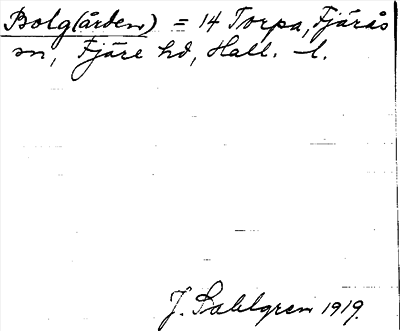 Bolg(ården) = 14 Torpa, Fjärås
sn, Fjäre hd, Hall. l.
J. Sahlgren 1919.